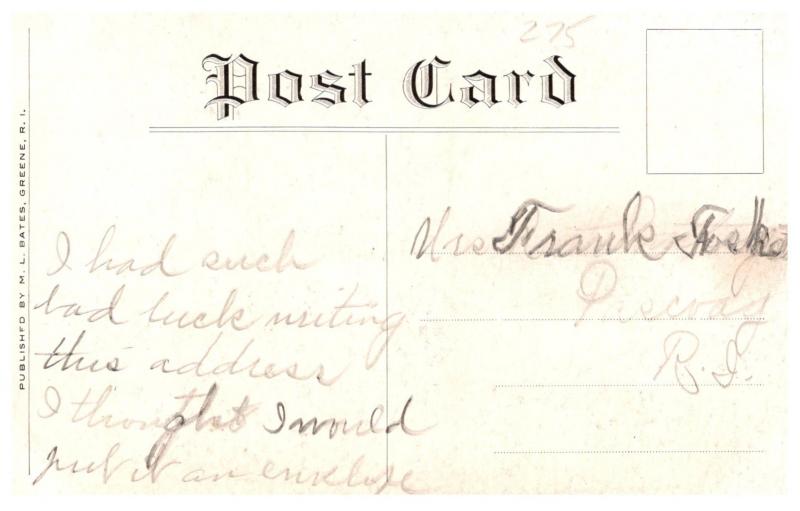 275
Post Card
PUBLISHED BY M. L. BATES, GREENE, R. I.
I had such
bad luck writing
this address
I thought I would
put it an envelope
Mrs Frank
Pascoag
R.I.